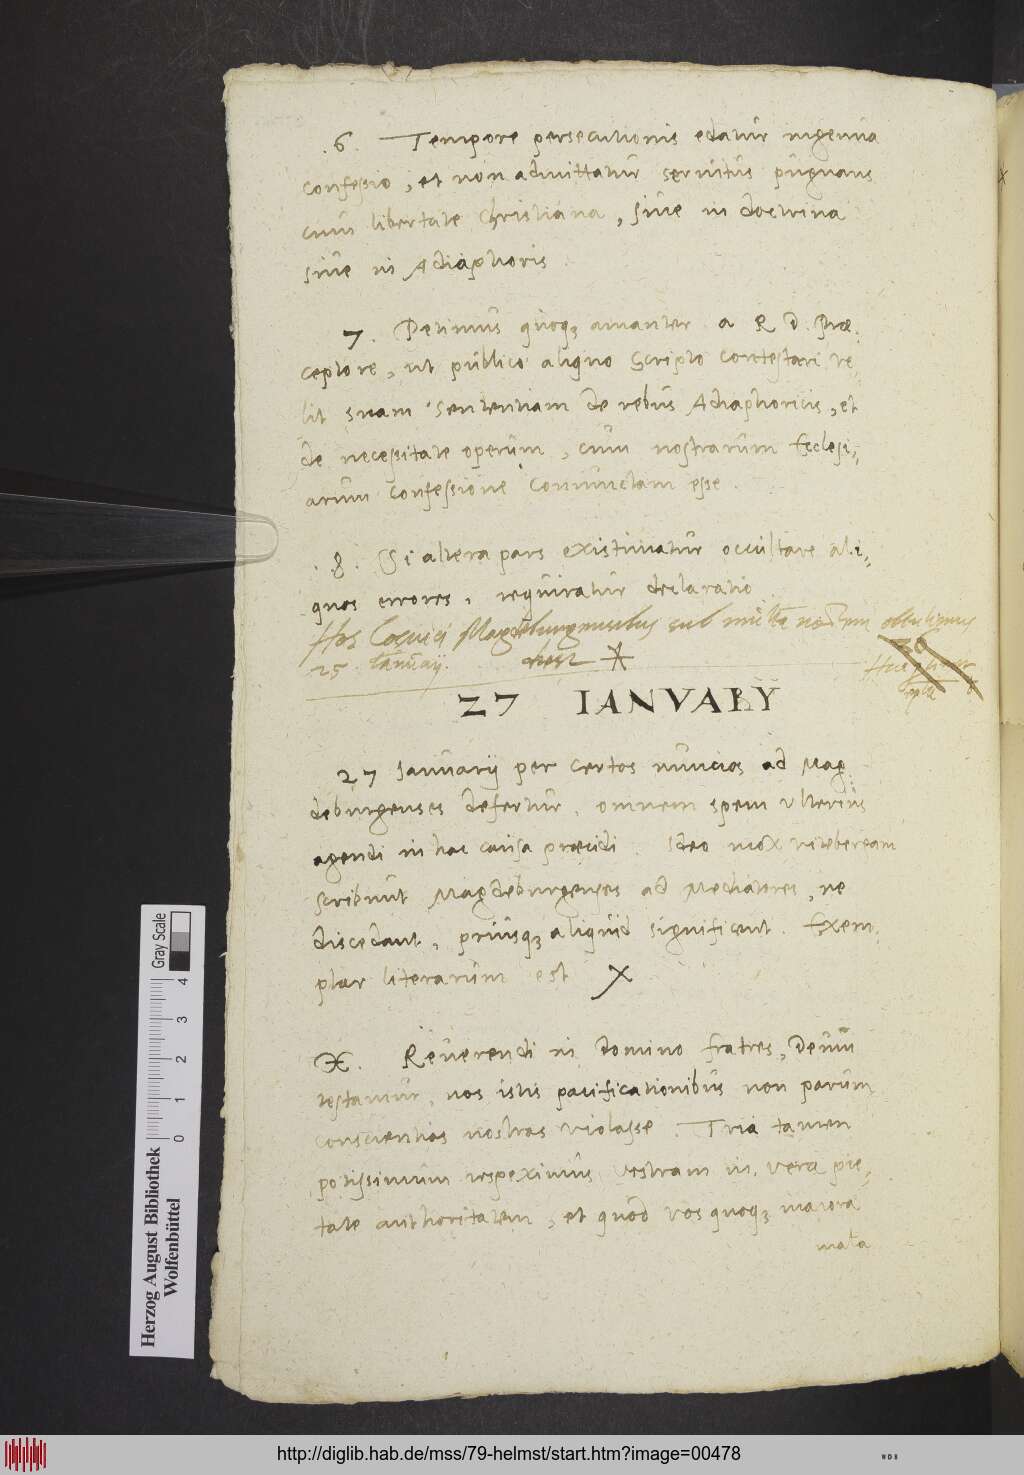 .6. Tempore persecutionis edatur ingenua
confessio, et non admittatur servitus pugnans
cum libertate Christiana, sive in doctrina
sive in Adiaphoris.
7. Petimus quoqꝫ amanter a R D. Præ,
ceptore, ut publico aliquo scripto contestari ve,,
lit suam sententiam de rebus Adiaphoricis, et
de necessitate operum, cum nostrarum Ecclesi,,
arum confessione coniunctam esse.
.8. Si altera pars existimatur occultare ali,,
quos errores, requiratur declaratio.
Hos Cosuici Magdeburgensibus sub obtulimus
25 Ianuarij.
27 IANVARII
27 Ianuarij per certos nuncios ad Mag,,
deburgenses defertur, omnem spem ulterius
agendi in hac causa præcidi. Ideo mox vitebergam
scribunt Magdeburgenses ad Mediatores, ne
discedant, priusqꝫ aliquid significent. Exem,,
plar literarum est X
X. Reverendi in Domino fratres, Deum
testamur, nos istis pacificationibus non parum
conscientias nostras violasse. Tria tamen
potissimum respeximus, vestram in vera pie,,
tate authoritatem, et quod vos quoqꝫ maiora
mala
Herzog August Bibliothek
Wolfenbüttel
0 1 2 3 4
Gray Scale
http://diglib.hab.de/mss/79-helmst/start.htm?image=00478
WDB